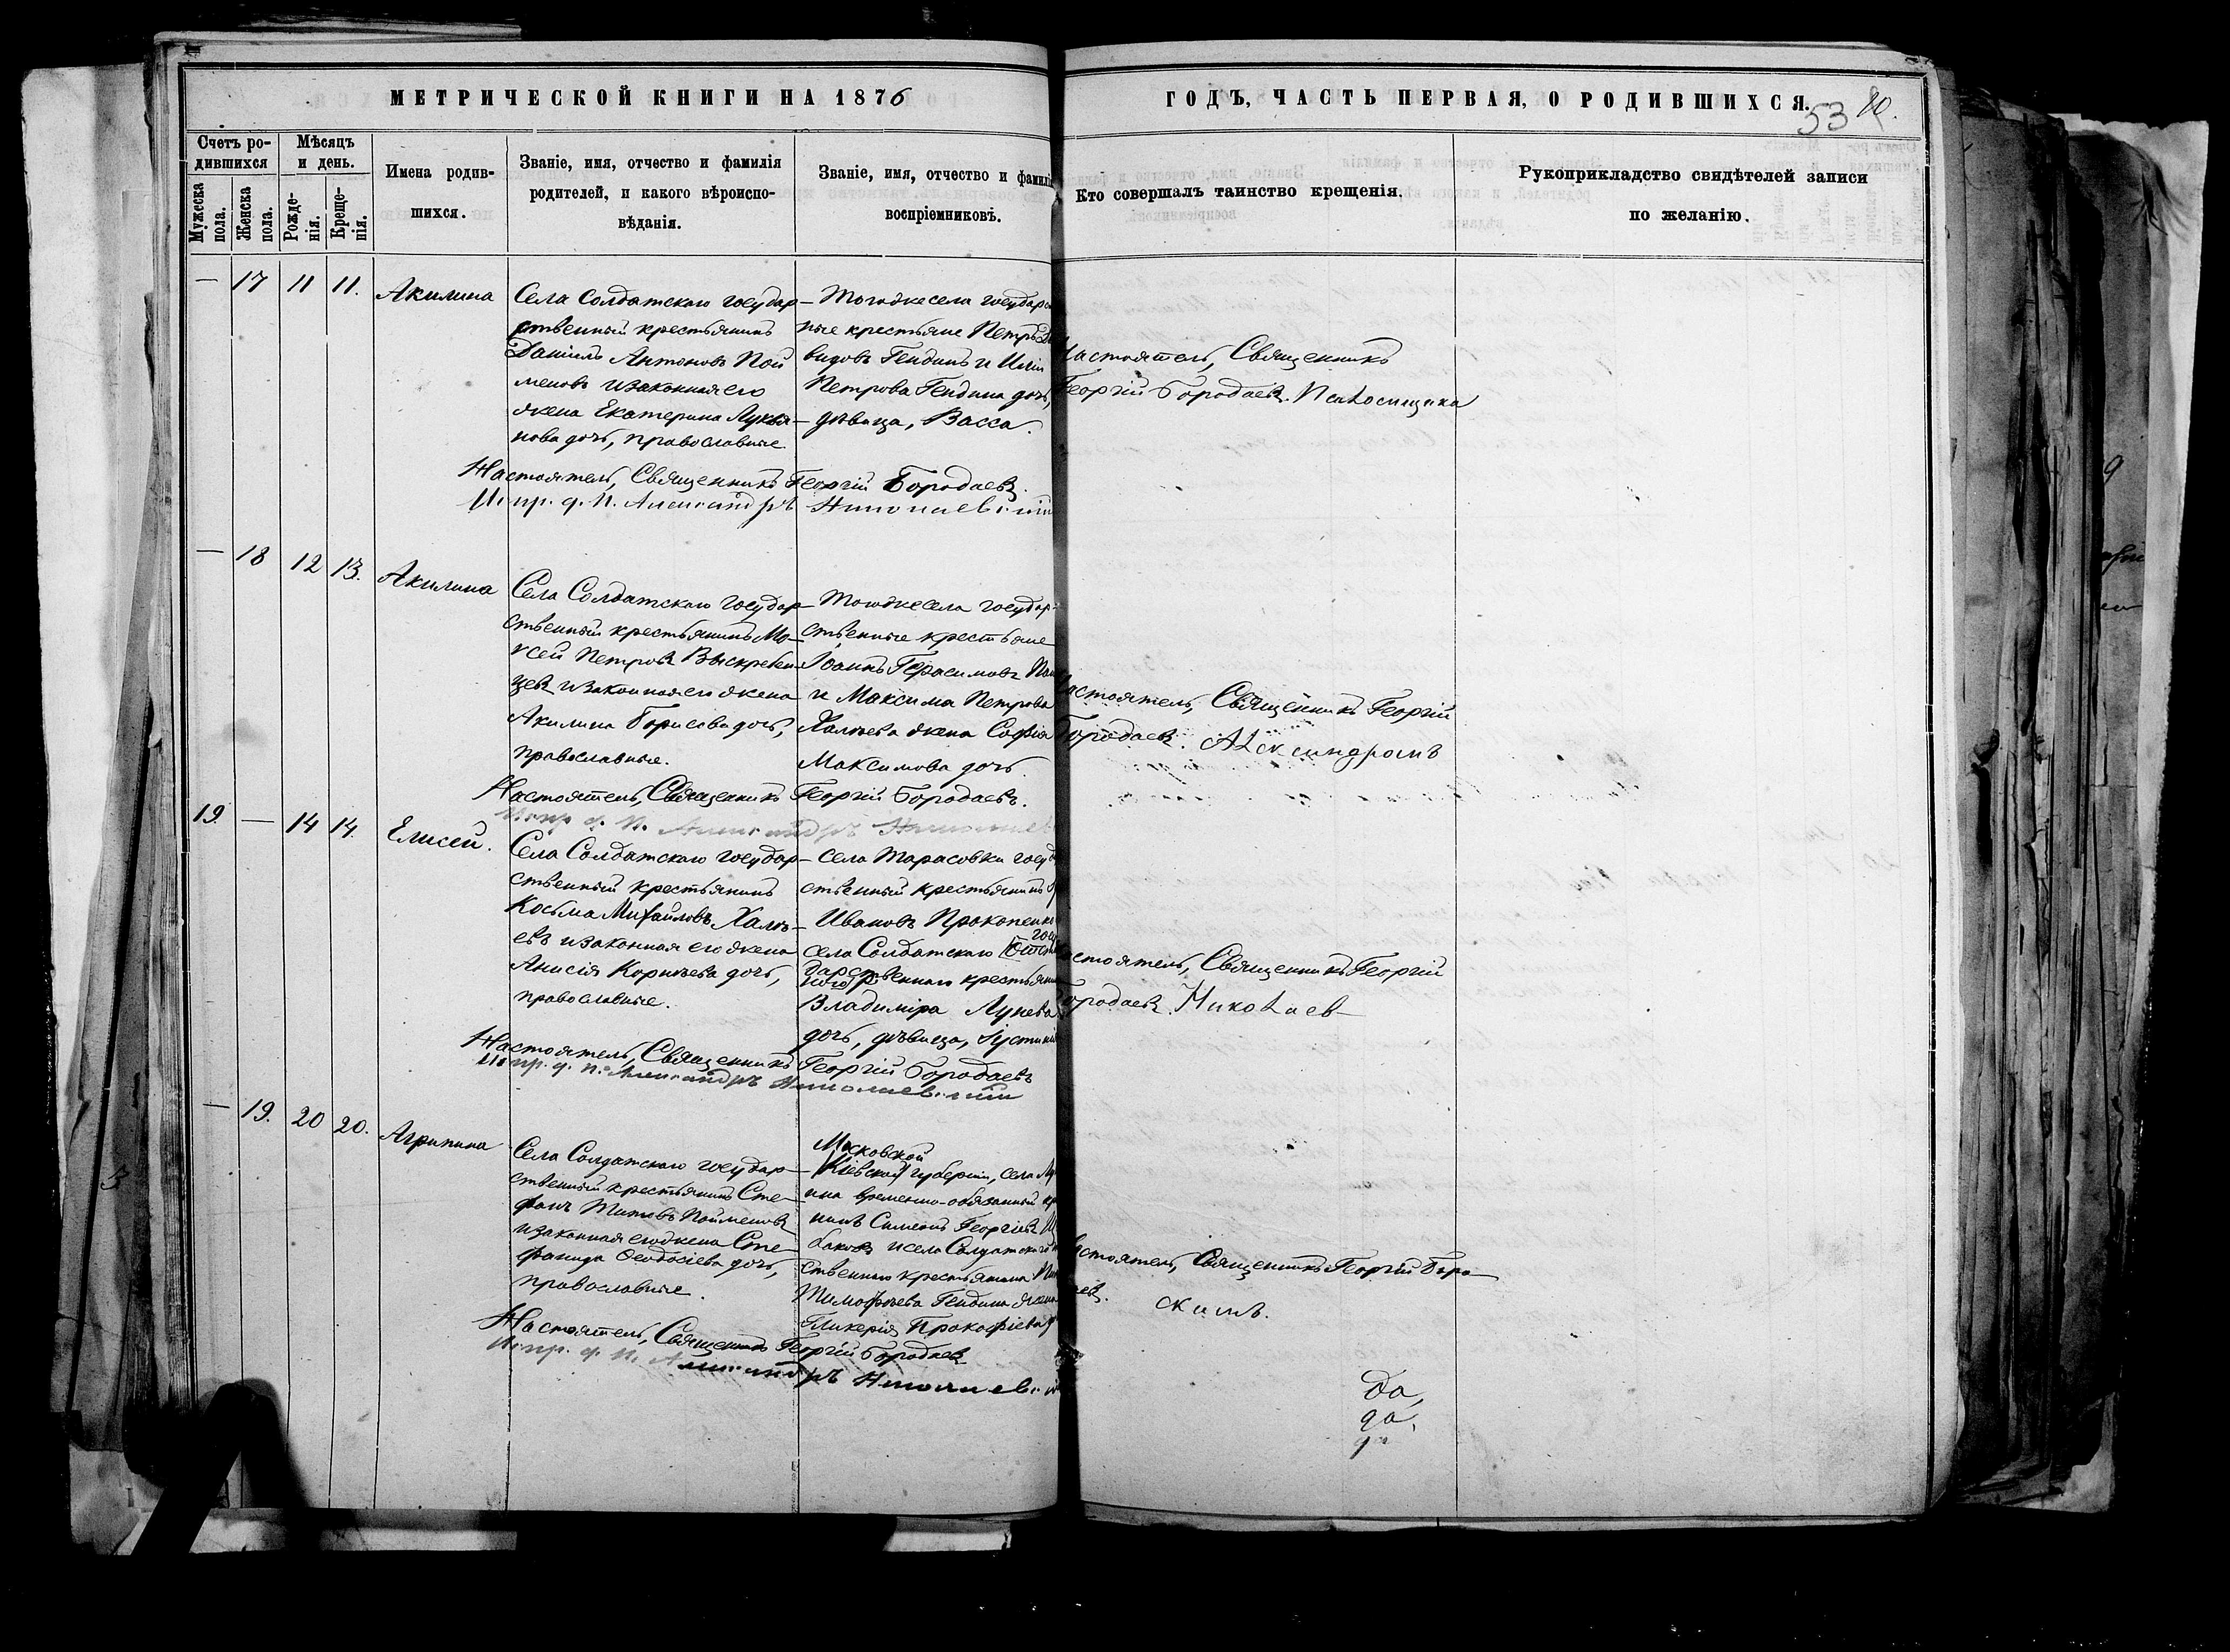 МЕТРИЧЕСКОЙ КНИГИ НА 1876
ГОДЪ, ЧАСТЬ ПЕРВАЯ, О РОДИВШИХСЯ.
53 80.
Счетъ ро-
дившихся
Мужеска пола.
Женска пола.
Мѣсяцъ
и день.
Рожде-
нія.
Креще-
нія.
Имена родив-
шихся.
Званіе, имя, отчество и фамилія
родителей, и какого вѣроиспо-
вѣданія.
Званіе, имя, отчество и фамилі
воспріемниковъ.
Кто совершалъ таинство крещенія.
Рукоприкладство свидѣтелей записи
по желанію.
— 17 11 11. Акилина
Села Солдатскаго государ-
ственный крестьянинъ
Даніилъ Антоновъ Пой
меновъ и законная его
жена Екатерина Лукья-
нова дочь, православные
Тогоже села государс
ные крестьяне Петръ Да
видовъ Гендинъ и Иліи
Петрова Гендина дочь,
дѣвица, Васса.
Настоятель, Священникъ
Георгій Бородаевъ. Псаломщика
Настоятель, Священникъ Георгій Бородаевъ.
Испр. д. П. Александръ Николаевскій
— 18 12 13. Акилина
Села Солдатскаго государ-
ственный крестьянинъ Мо-
исей Петровъ Выскребен-
цевъ и законная его жена
Акилина Борисова дочь,
православные.
Тогоже села государ-
ственные крестьяне
Іоаннъ Герасимовъ
и Максима Петрова
Халѣева жена Софія
Максимова дочь.
Настоятель, Священникъ Георгій
Бородаевъ. Александромъ
Настоятель, Священникъ Георгій Бородаевъ.
Испр. д. П. Александръ Николаев
19. — 14 14. Елисей.
Села Солдатскаго государ-
ственный крестьянинъ
Косьма Михайловъ Халѣ-
евъ и законная его жена
Анисія Корнѣева дочь,
православные.
села Тарасовки госуд
ственный крестьянинъ
Ивановъ Прокопенко
села Солдатскаго
дарственнаго крестьяни
Владиміра Лунева
дочь, дѣвица, Іустині
Настоятель, Священникъ Георгій
Бородаевъ. Николаев
Настоятель, Священникъ Георгій Бородаевъ
Испр. д. П. Александръ Николаевскій
— 19. 20 20. Агрипина
Села Солдатскаго государ-
ственный крестьянинъ Сте-
фанъ Титовъ Пойменовъ
и законная его жена Сте-
фанида Ѳеодосіева дочь,
православные.
Московской
Кіевской губерніи, села
ина временно-обязанный кр
нинъ Симеонъ Георгіевъ
баковъ и села Солдатскаго
ственнаго крестьянина
Тимоѳѣева Гендина жена
Гликерія Прокофіева
Настоятель, Священникъ Георгій Боро-
евъ. скимъ.
Настоятель, Священникъ Георгій Бородаевъ
Испр. д. П. Александръ Николаевскій
да,
да,
да